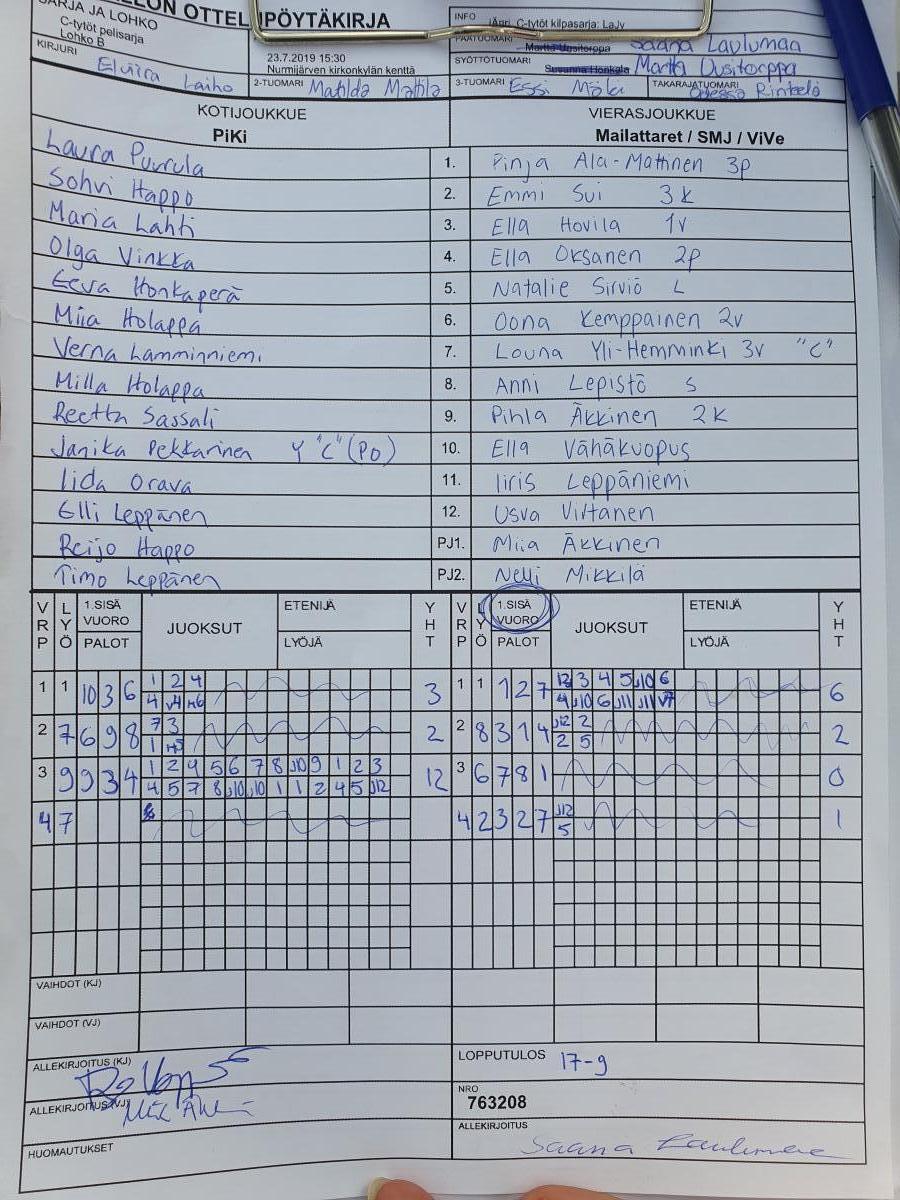 SARJA JA LOHKO
C-tytöt pelisarja
Lohko B
OTTELUPÖYTÄKIRJA
INFO
C-tytöt kilpasarja: LaJv
Saana Laulumaa
KIRJURI
Elviira Laiho
23.7.2019 15:30
Nurmijärven kirkonkylän kenttä
SYÖTTÖTUOMARI
Martta Uusitorppa
2-TUOMARI Matilda Mattila
3-TUOMARI Essi Mölä
TAKARAJATUOMARI
Rintelä
KOTIJOUKKUE
PiKi
VIERASJOUKKUE
Mailattaret / SMJ / ViVe
Laura Puurula 1. Pinja Ala-Mattinen 3p
Sohvi Happo 2. Emmi Sui 3k
Maria Lahti 3. Ella Hovila 1v
Olga Vinkka 4. Ella Oksanen 2p
Eeva Honkaperä 5. Natalie Sirviö L
Miia Holappa 6. Oona Kemppainen 2v
Verna Lamminniemi 7. Louna Yli-Hemminki 3v "C"
Milla Holappa 8. Anni Lepistö S
Reetta Sassali 9. Pihla Äkkinen 2k
Janika Pekkarinen Y "C" (Po) 10. Ella Vähäkuopus
Iida Orava 11. Iiris Leppäniemi
Elli Leppänen 12. Usva Virtanen
Reijo Happo PJ1. Miia Äkkinen
Timo Leppänen PJ2. Nelli Mikkilä
VRP LYÖ 1.SISÄ VUORO PALOT JUOKSUT ETENIJÄ LYÖJÄ YHT VRP LYÖ 1.SISÄ VUORO PALOT JUOKSUT ETENIJÄ LYÖJÄ YHT
1 1 10 3 6 1 2 4 3 1 1 1 2 7 12 3 4 5 J10 6 6
4 v4 4 J10 6 J11 J11 v7
2 7 6 9 8 7 3 2 2 8 3 1 4 J12 2 2
1 2 5
3 9 9 3 4 1 2 4 5 6 7 8 J10 9 1 2 3 12 3 6 7 8 1 0
4 5 7 8 J10 J10 1 1 2 4 5 J12
4 7 4 2 3 2 7 J12 1
5
VAIHDOT (KJ)
VAIHDOT (VJ)
ALLEKIRJOITUS (KJ)
LOPPUTULOS 17-9
ALLEKIRJOITUS (VJ)
NRO
763208
HUOMAUTUKSET
ALLEKIRJOITUS
Saana Laulumaa